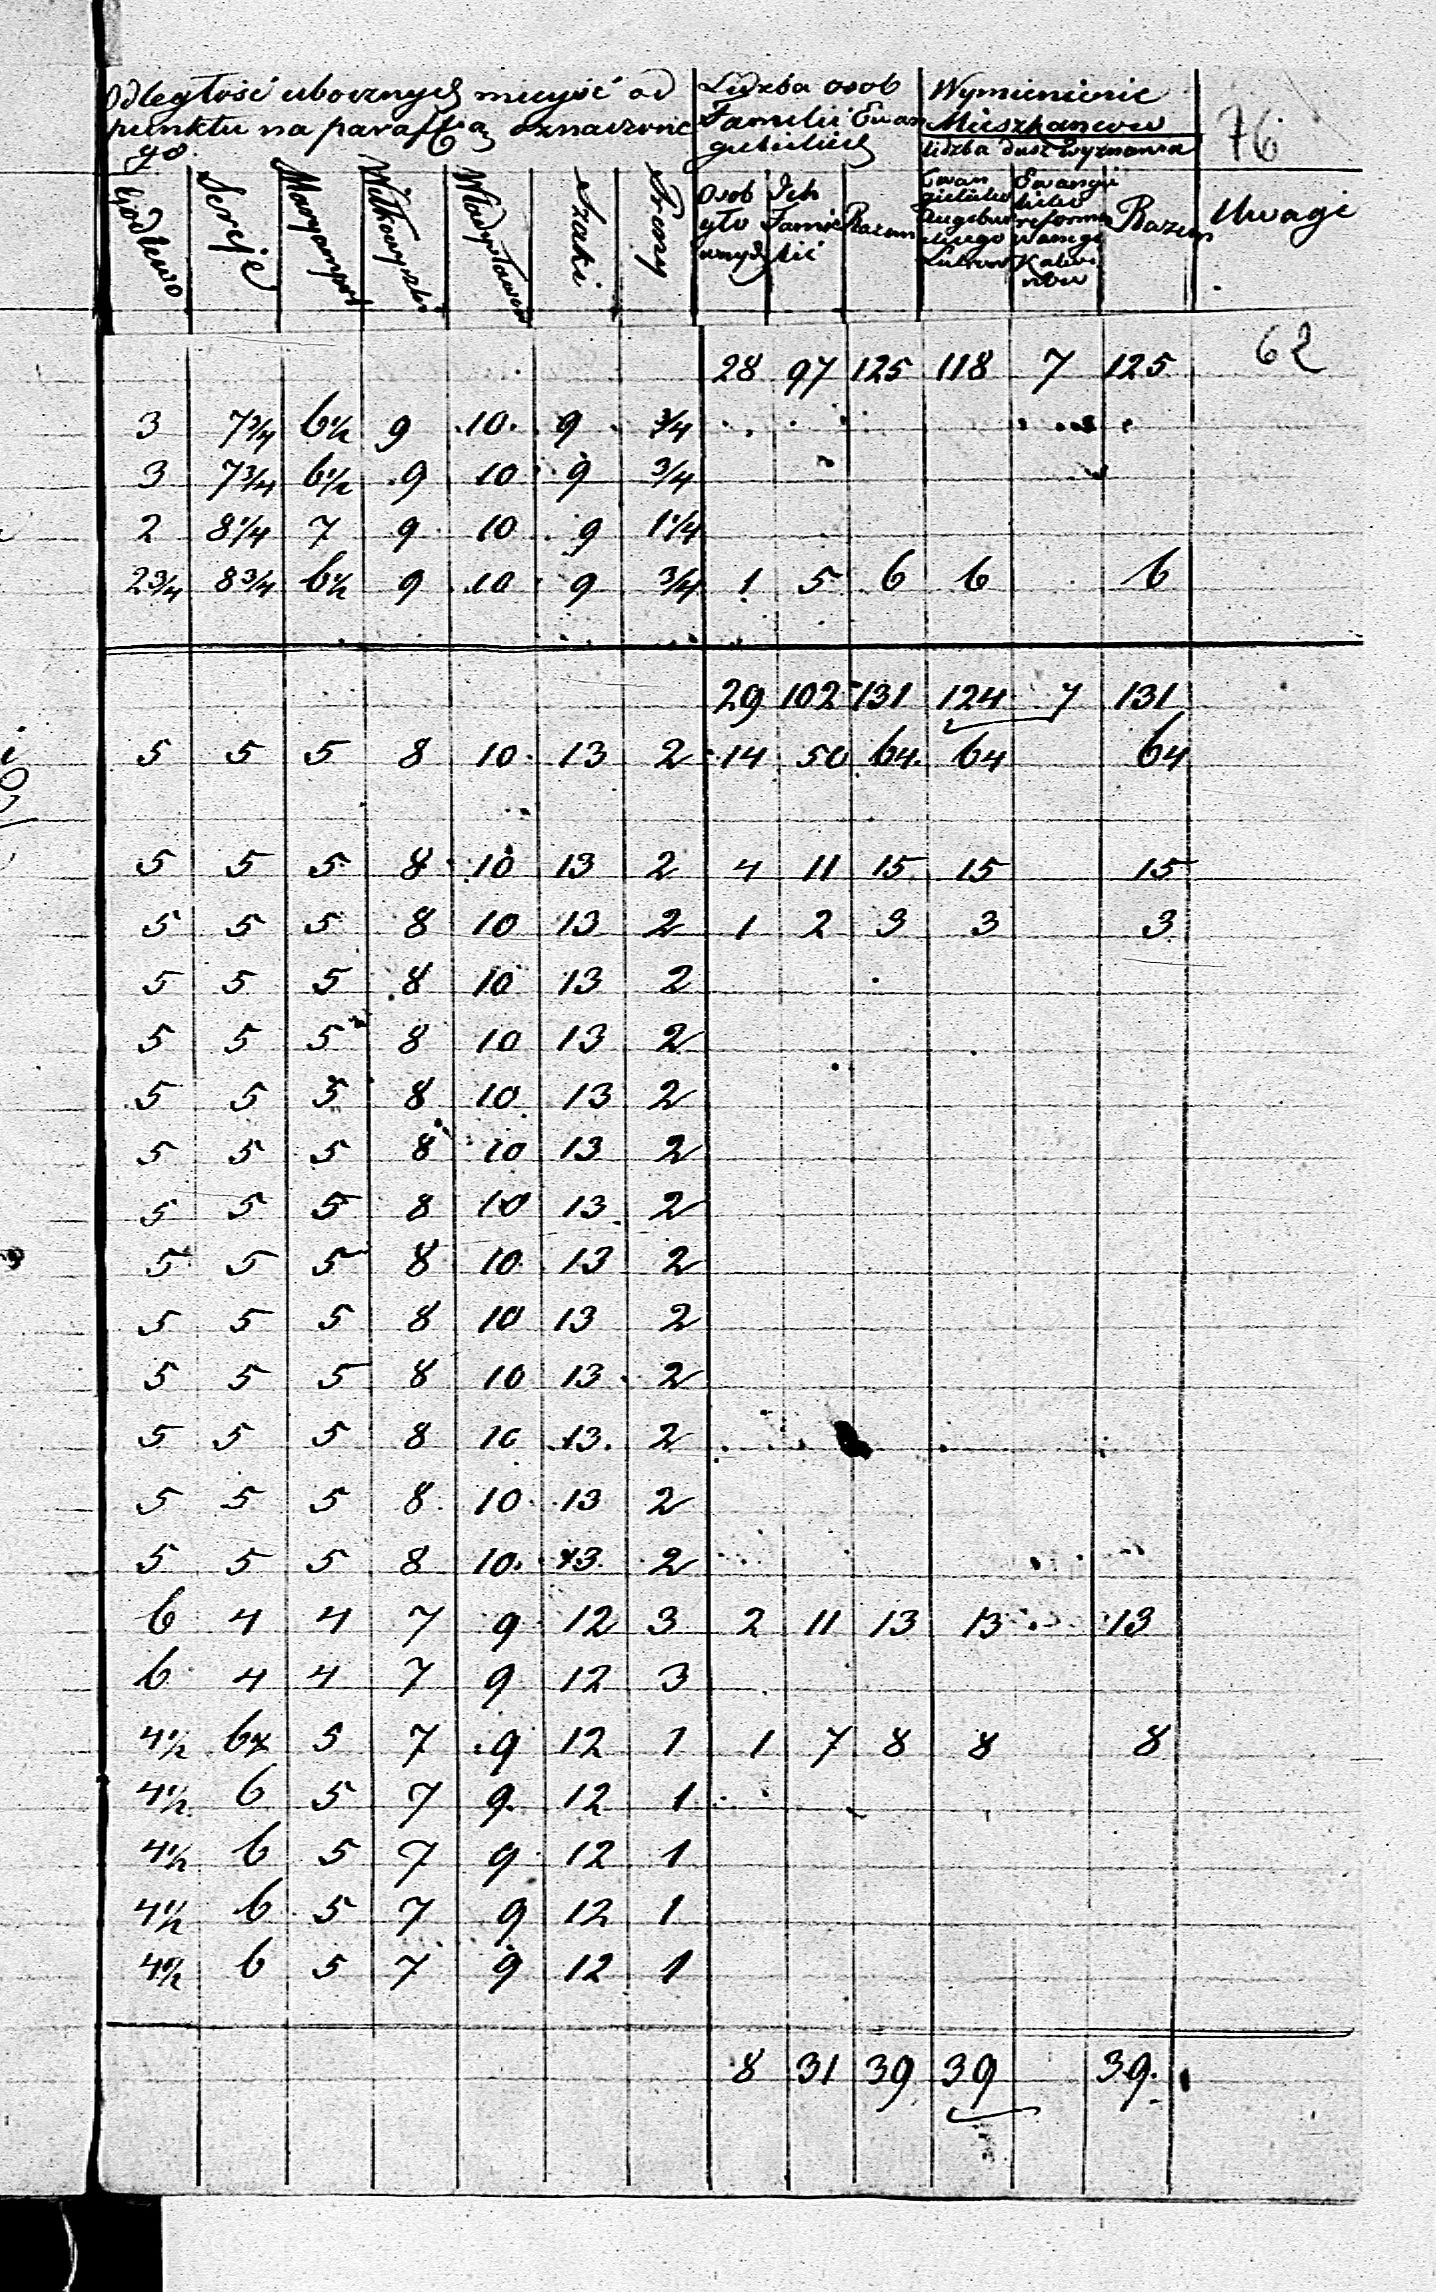 Odległość ubocznych mieysć od
punktu na paraffią oznaczone
go.
Liczba osob
Familii Ewan
gielickich
Wymienienie
Mieszkancow
liczba dusz Wyznania
76
Godlewo Sereje Maryampol Wiłkowyszki Władysławow Szaki Preny
Osob
Ich
Famie
lie
Razem
Ewan
gielicko
Augsbur
skiego
Lutrow
Ewangie
licko
reformo
wanego
Kalwi
now
Razem
Uwagi
62
28 97 125 118 7 125
3 7 3/4 6 1/2 9 10 9 3/4
3 7 3/4 6 1/2 9 10 9 3/4
2 8 1/4 7 9 10 9 1 1/4
2 3/4 8 3/4 6 1/2 9 10 9 3/4 1 5 6 6 6
29 102 131 124 7 131
5 5 5 8 10 13 2 14 50 64 64 64
5 5 5 8 10 13 2 4 11 15 15 15
5 5 5 8 10 13 2 1 2 3 3 3
5 5 5 8 10 13 2
5 5 5 8 10 13 2
5 5 5 8 10 13 2
5 5 5 8 10 13 2
5 5 5 8 10 13 2
5 5 5 8 10 13 2
5 5 5 8 10 13 2
5 5 5 8 10 13 2
5 5 5 8 10 13 2
5 5 5 8 10 13 2
5 5 5 8 10 13 2
6 4 4 7 9 12 3 2 11 13 13 13
6 4 4 7 9 12 3
4 1/2 6 5 7 9 12 1 1 7 8 8 8
4 1/2 6 5 7 9 12 1
4 1/2 6 5 7 9 12 1
4 1/2 6 5 7 9 12 1
4 1/2 6 5 7 9 12 1
8 31 39 39 39